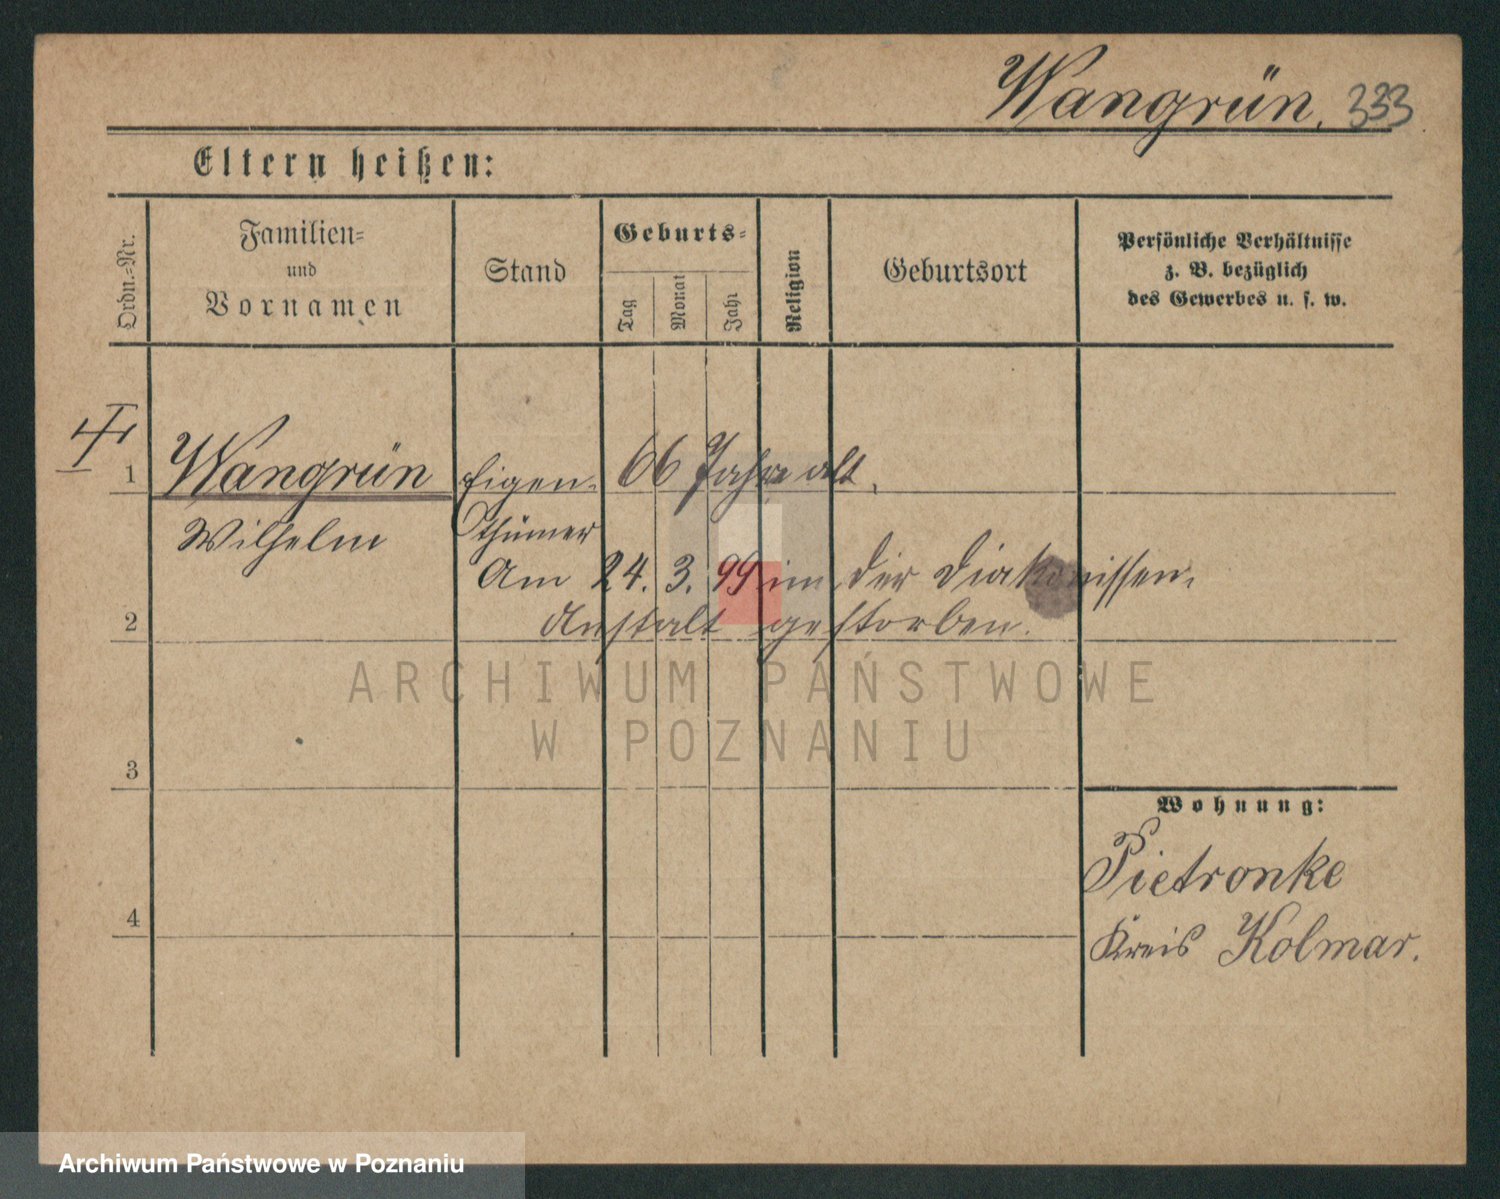 Wangrün. 333
Eltern heißen:
Ordn.-Nr.
Familien-
und
Vornamen
Stand
Geburts-
Tag
Monat
Jahr
Religion
Geburtsort
Persönliche Verhältnisse
z. B. bezüglich
des Gewerbes u. s. w.
1
Wangrün
Eigen-
66 Jahre alt.
Wilhelm
thümer
Am 24. 3. 99 in der Diakonissen-
2
Anstalt gestorben.
ARCHIWUM PAŃSTWOWE
W POZNANIU
3
Wohnung:
Pietronke
4
Kreis Kolmar.
Archiwum Państwowe w Poznaniu